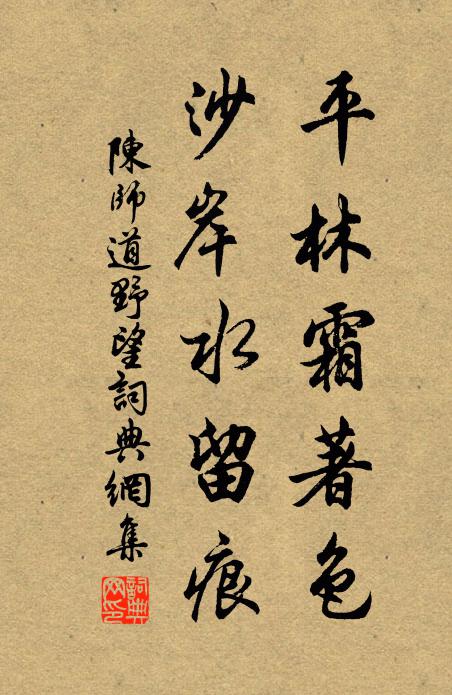 平林霜著色
沙岸水留痕
陳師道野望詞典網集
詞典網印